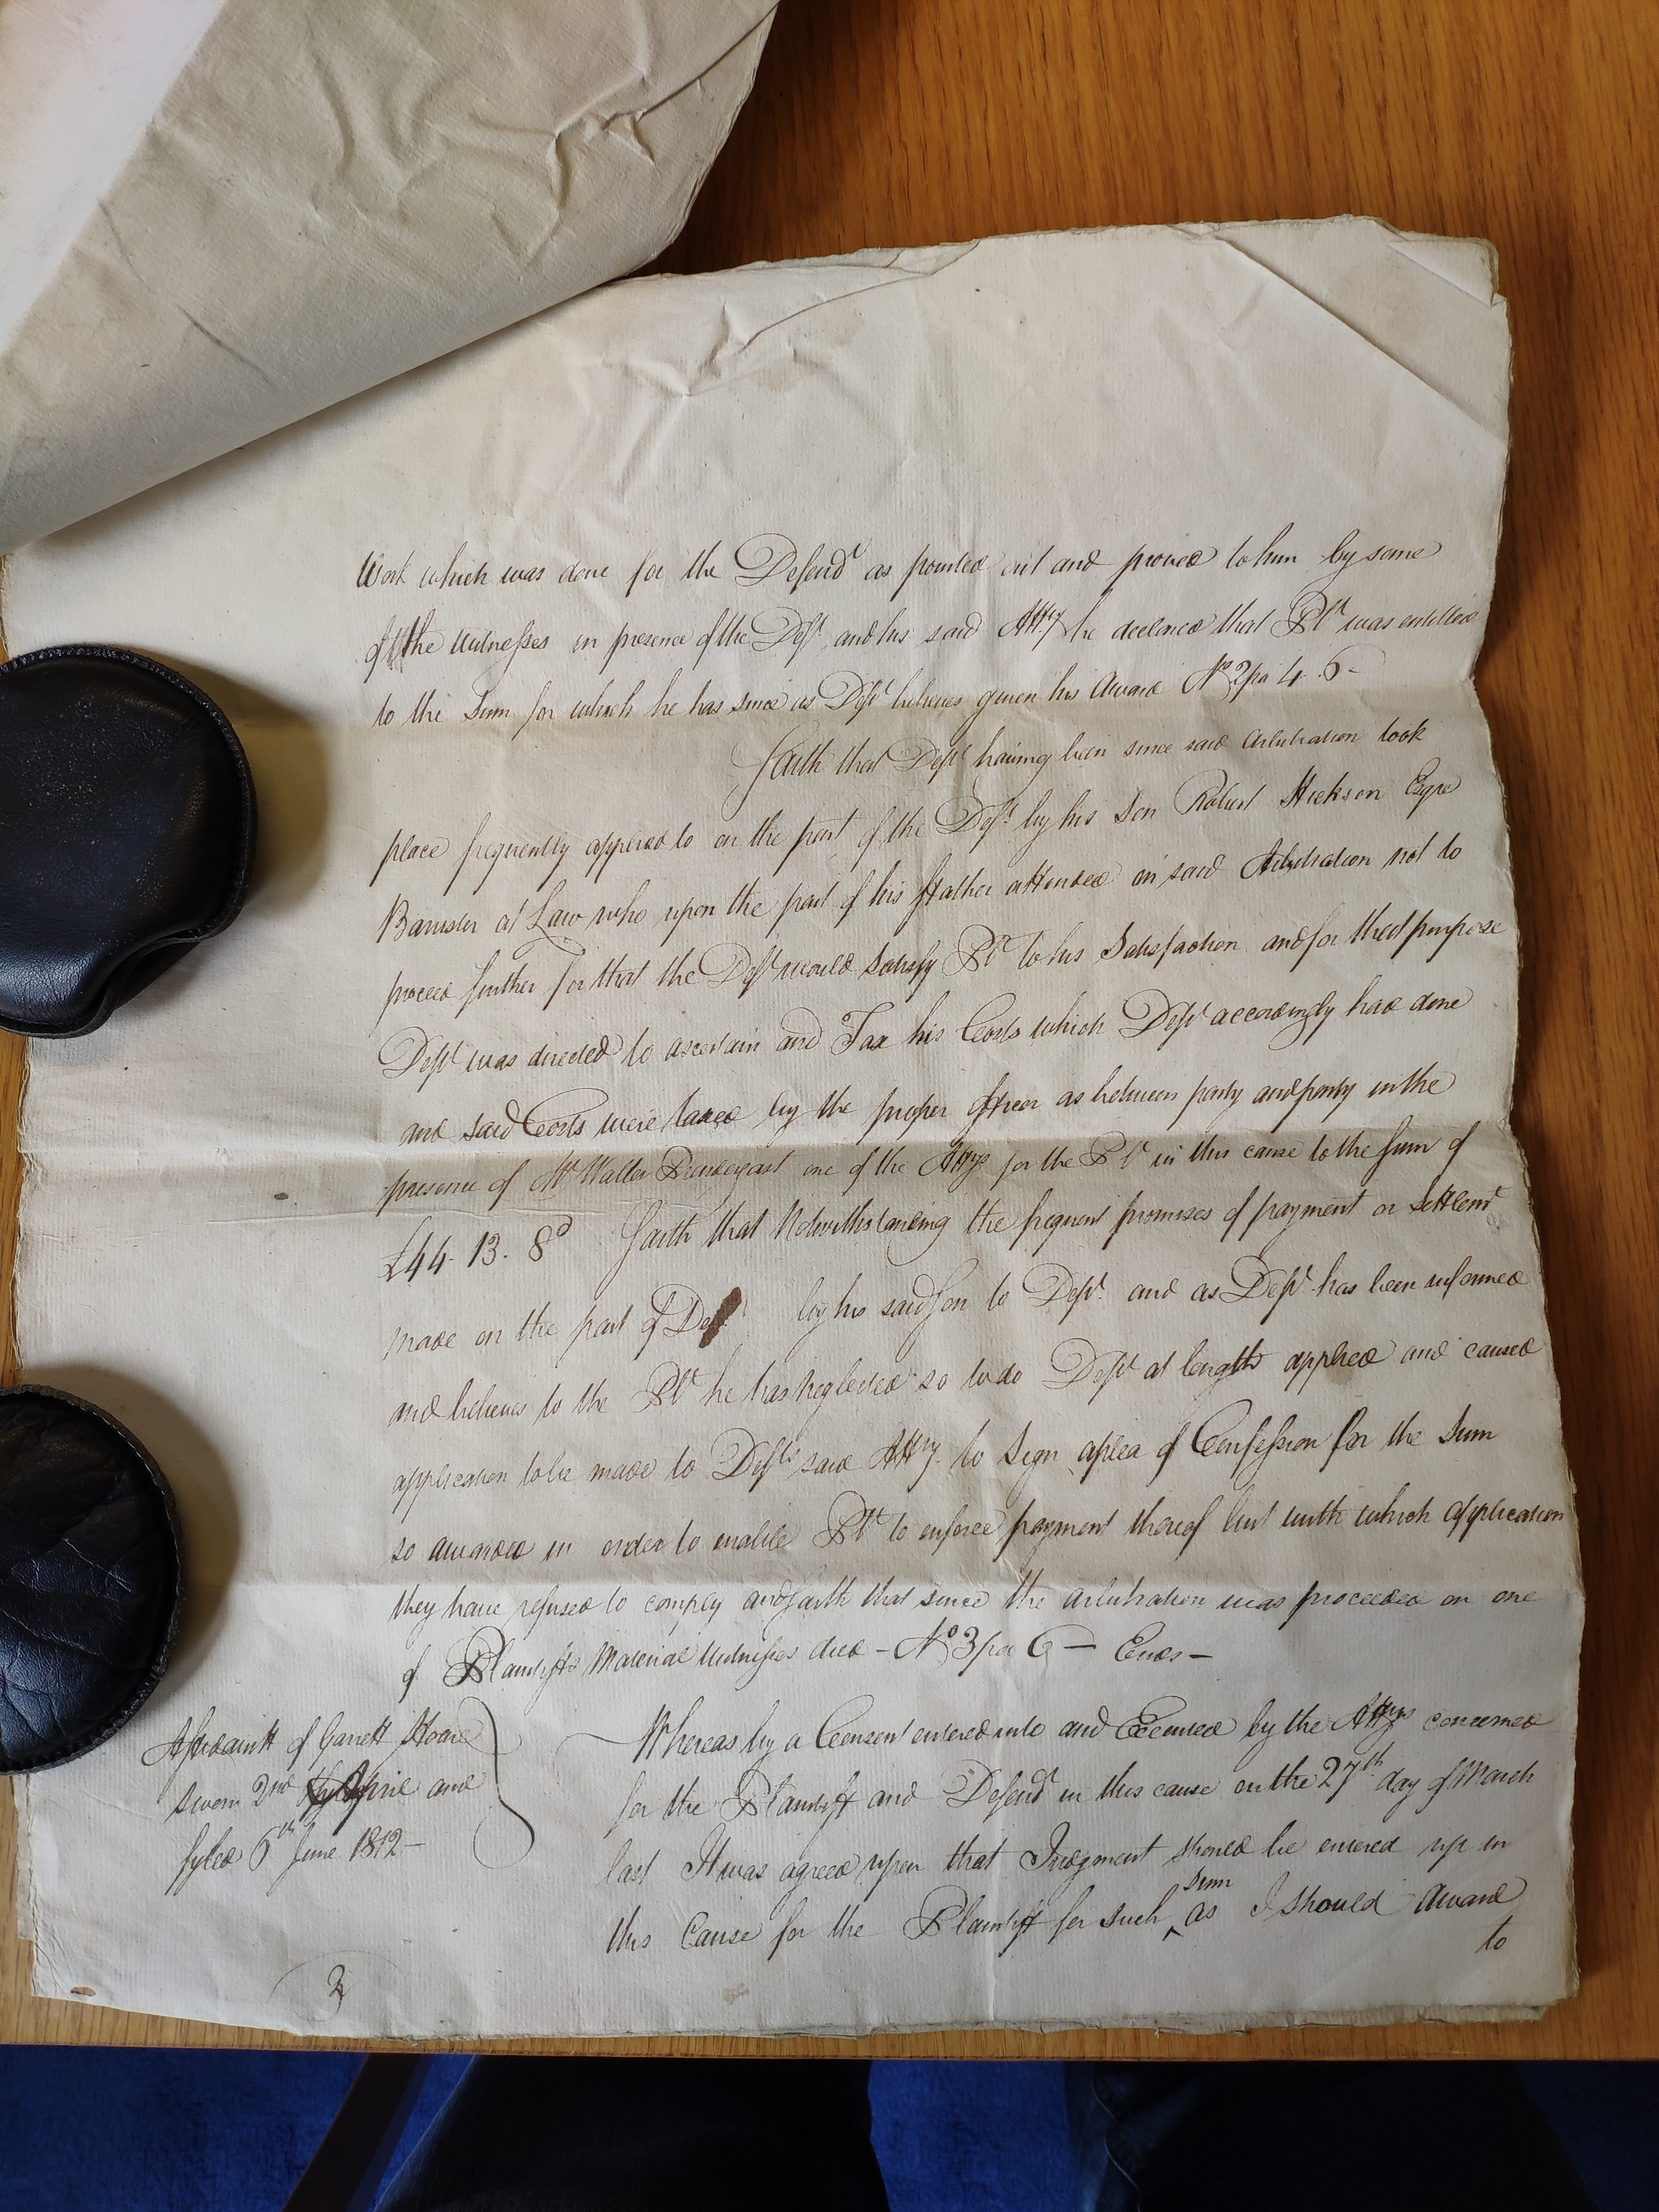 Work which was done for the Defend^t as pointed out and proved to him by some
of the Witnesses in presence of the Def^t and his said Att^y he declared that Pl^t was entitled
to the Sum for which he has since as Dep^t believes given his Award N^o 2 pa 4. 6 -
Saith that Dep^t having been since said Arbitration took
place frequently applied to on the part of the Def^t by his Son Robert Hickson Esqre
Barrister at Law who upon the part of his ffather attended on said Arbitration not to
proceed further for that the Def^t would satisfy Pl^t to his Satisfaction and for that purpose
Dep^t was directed to ascertain and Tax his Costs which Dep^t accordingly had done
and said Costs were taxed by the proper Officer as between party and party in the
presence of M^r Walter Prendergast one of the Attys for the Pl^t in this cause to the Sum of
£44. 13. 8^d Saith that Notwithstanding the frequent promises of payment or Settlem^t
made on the part of Def^t by his said Son to Dep^t and as Dep^t has been informed
and believes to the Pl^t he has neglected so to do Dep^t at length applied and caused
application to be made to Def^ts said Att^y to Sign a plea of Confession for the Sum
so awarded in order to enable Pl^t to enforce payment thereof but with which application
they have refused to comply and Saith that since the arbitration was proceeded on one
of Plaintiffs Material Witnesses died - N^o 3 pa 6 - Ends -
Affidavitt of Garrett Hoare
sworn 2^nd April and
fyled 6^th June 1812 -
Whereas by a Consent entered into and Executed by the Att^ys concerned
for the Plaintiff and Defend^t in this cause on the 27^th day of March
last It was agreed upon that Judgment should be entered up in
this Cause for the Plaintiff for such ^sum as I should Award
to
2